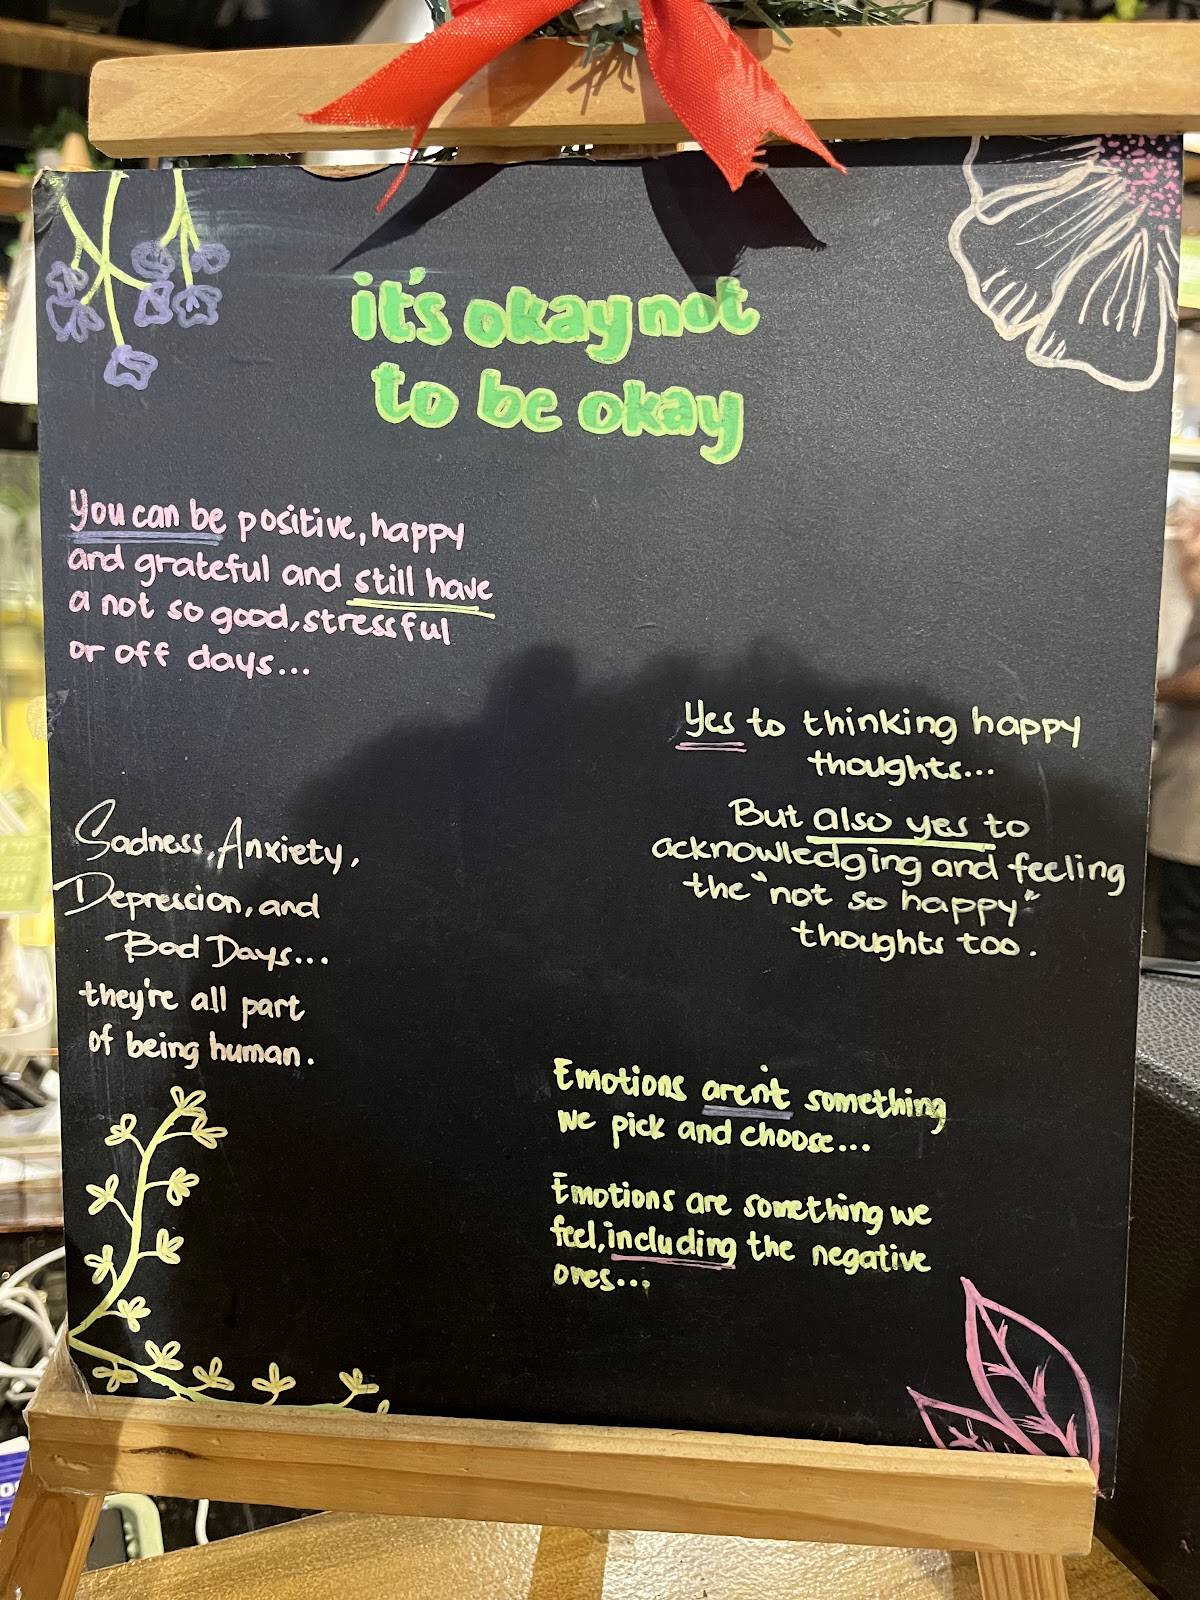 it's okay not
to be okay
You can be positive, happy
and grateful and still have
a not so good, stressful
or off days...
Yes to thinking happy
thoughts...
But also yes to
acknowledging and feeling
the "not so happy"
thoughts too.
Sadness, Anxiety,
Depression, and
Bad Days...
they're all part
of being human.
Emotions aren't something
we pick and choose...
Emotions are something we
feel, including the negative
ones...